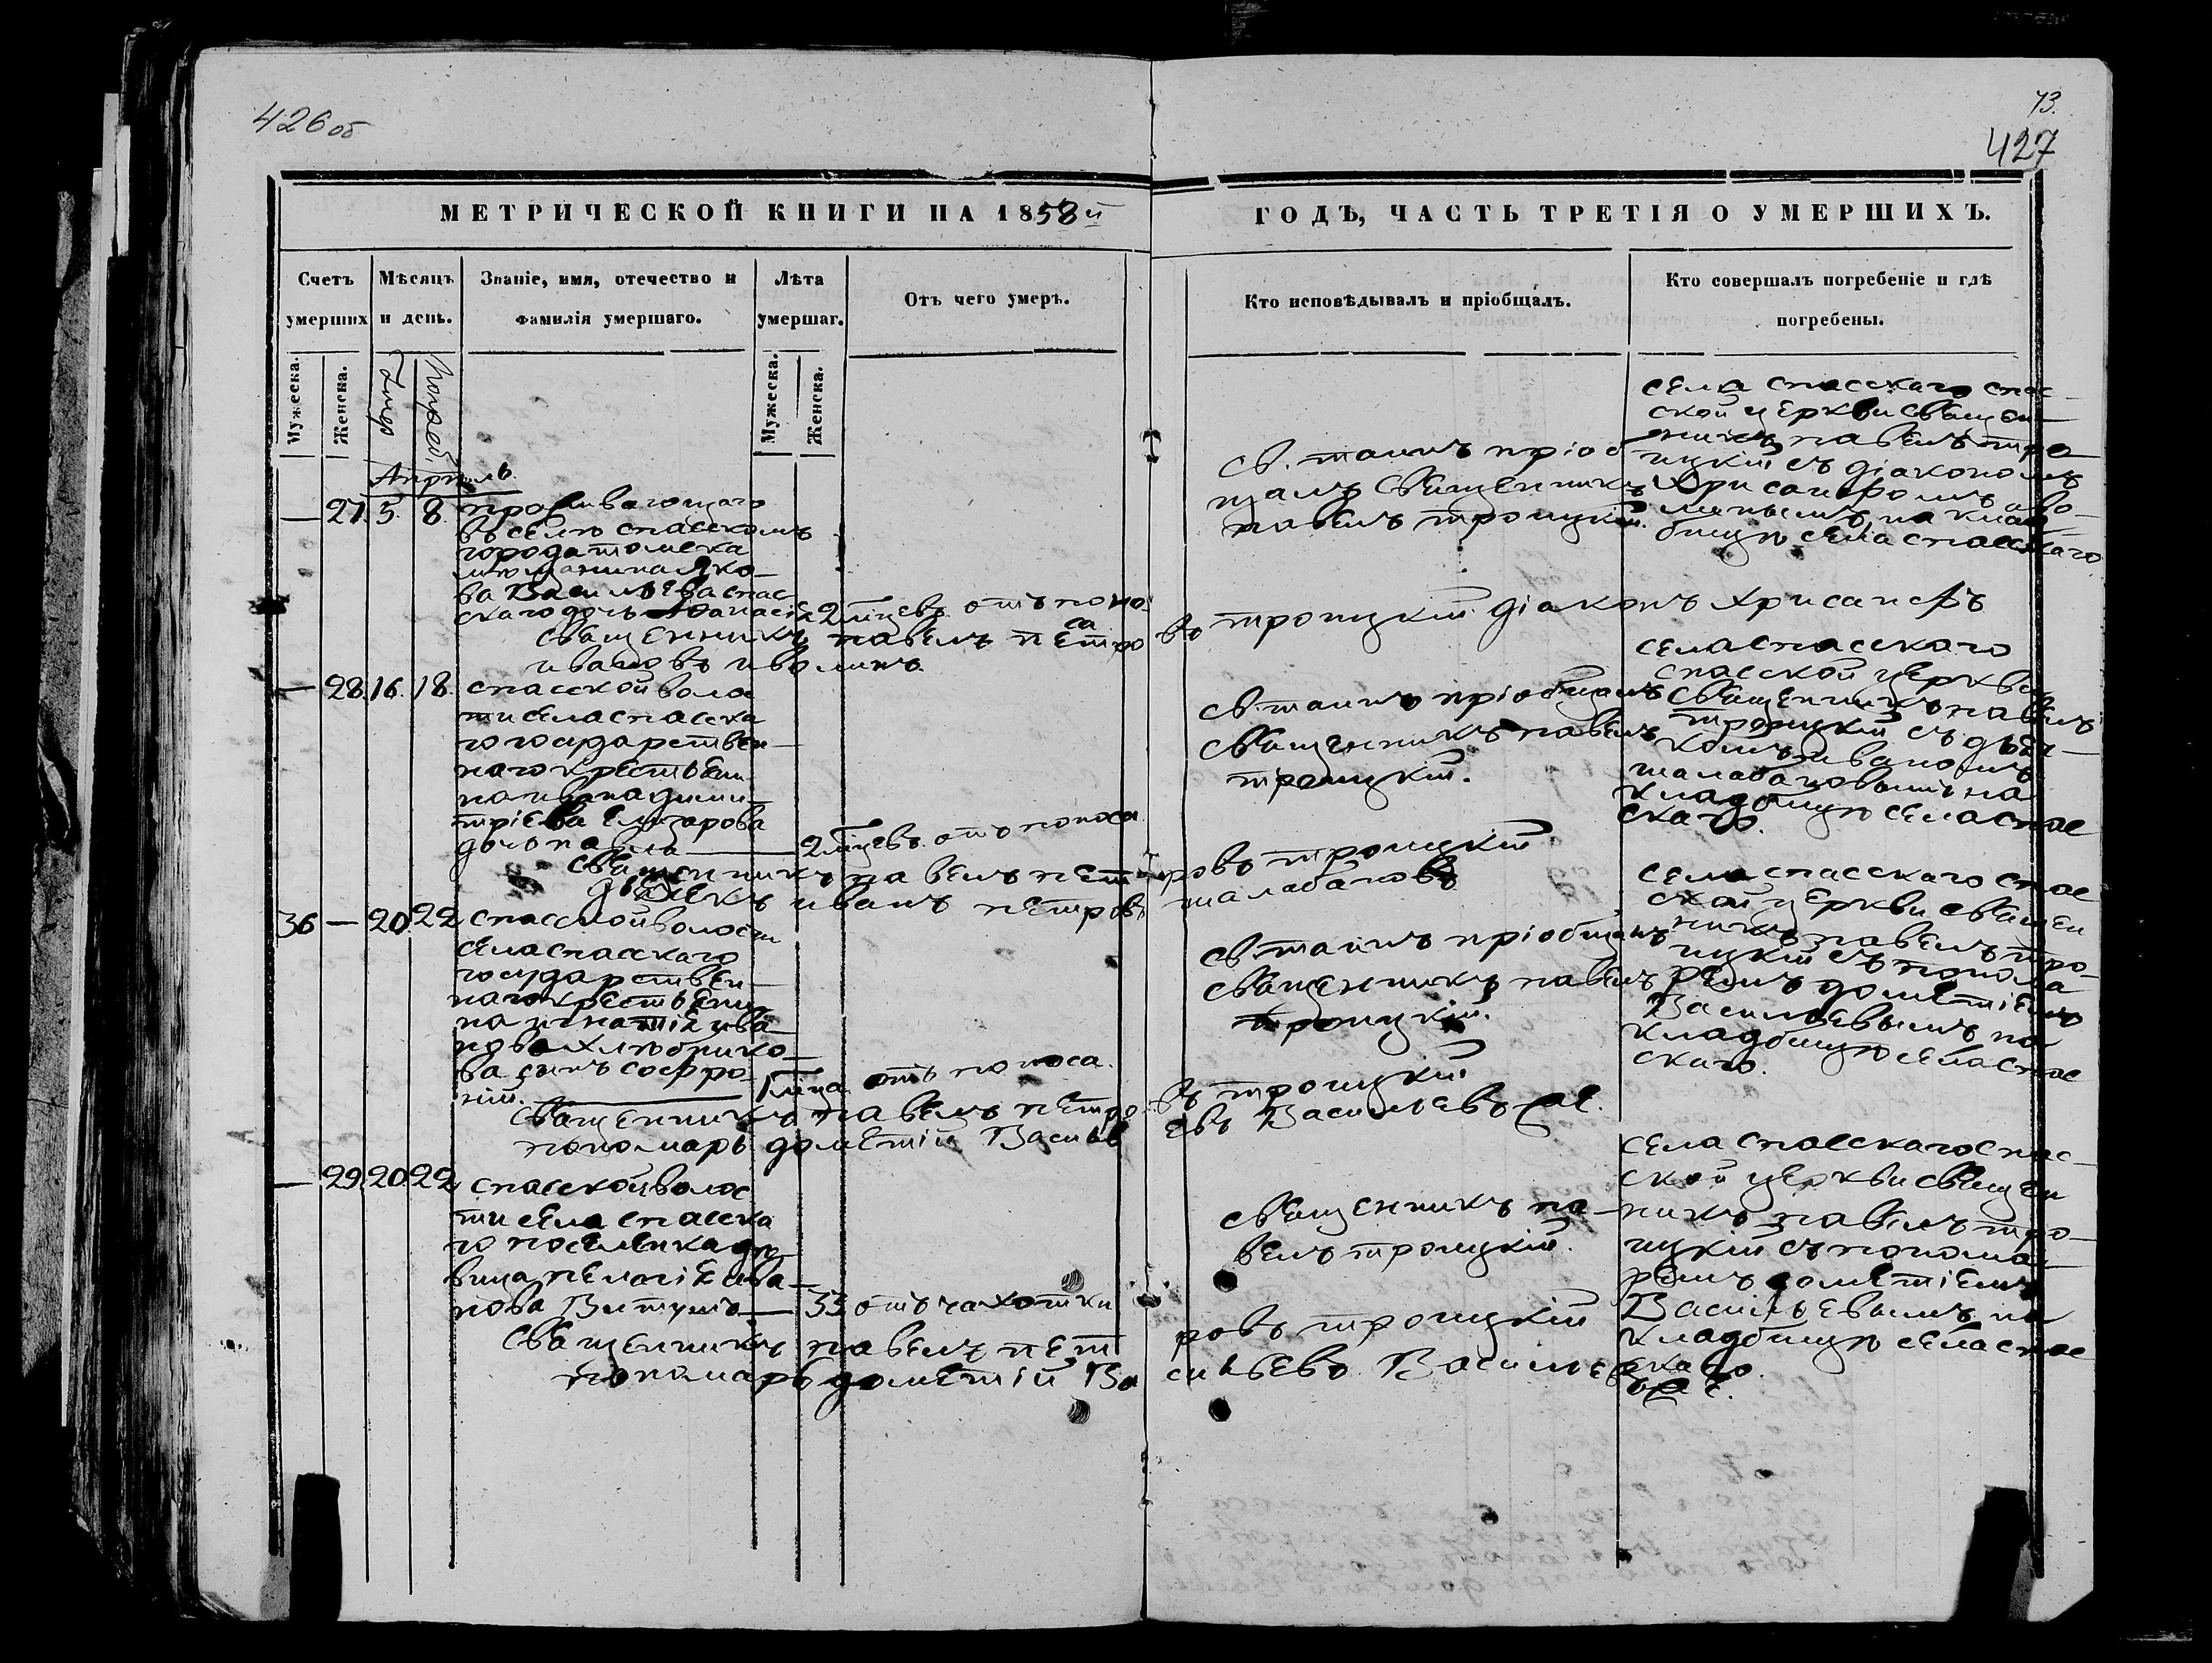 426 об
73.
427
МЕТРИЧЕСКОЙ КНИГИ НА 1858й
ГОДЪ, ЧАСТЬ ТРЕТІЯ О УМЕРШИХЪ.
Счетъ умерших
Мѣсяцъ и день.
Званіе, имя, отечество и фамилія умершаго.
Лѣта умершаг.
Отъ чего умеръ.
Кто исповѣдывалъ и пріобщалъ.
Кто совершалъ погребеніе и гдѣ погребены.
Мужеска.
Женска.
Погреб.
Мужеска.
Женска.
Апрель
— 27. 5. 8.
проживающаго
въ селѣ спасскомъ
города томска
мѣщанина Яко-
ва Васильева спас
скаго дочь Афанасія 2 мцевъ отъ поно
са
св. таинъ пріоб
щалъ священникъ
павелъ троицкій.
села спасскаго спас-
ской церкви священ-
никъ павелъ тро
ицкій съ діакономъ
Хрисанфомъ иво-
линымъ, на клад-
бищѣ села спасскаго
священникъ павелъ петро въ троицкій діаконъ хрисанфъ
ивановъ иволинъ.
— 28. 16. 18.
спасской воло
сти села спасска
го государствен-
наго крестьяни
на ивана дими-
тріева Елизарова
дочь павла — 2 мцевъ отъ поноса
св. таинъ пріобщалъ
священникъ павелъ
троицкій.
села спасскаго
спасской церкви
священникъ павелъ
троицкій съ дьяч-
комъ иваномъ
шалабановымъ на
кладбищѣ села спас
скаго.
священникъ павелъ пет ровъ троицкій
дьячекъ иванъ петровъ шалабановъ
36 — 20. 22
спасской волости
села спасскаго
государствен-
наго крестьяни
на игнатія ива
нова хлѣбнико-
ва сынъ софро
ній. — 1 мца отъ поноса.
св. таинъ пріобщалъ
священникъ павелъ
троицкій.
села спасскаго спас
ской церкви священ
никъ павелъ тро-
ицкій съ понома
ремъ дометіемъ
Васильевымъ на
кладбищѣ села спас
скаго.
священникъ павелъ петро въ троицкій
пономарь дометій Василь евъ Васильевъ
— 29. 20. 22
спасской волос
ти села спасска
го поселенка дѣ
вица пелагіе ива-
нова Витушъ — 33 отъ чахотки
священникъ па-
велъ троицкій.
села спасскаго спас-
ской церкви священ
никъ павелъ тро-
ицкій съ понома-
ремъ дометіемъ
Васильевымъ на
кладбищѣ села спас
скаго.
священникъ павелъ пет ровъ троицкій
пономарь дометій Ва сильевъ Васильевъ